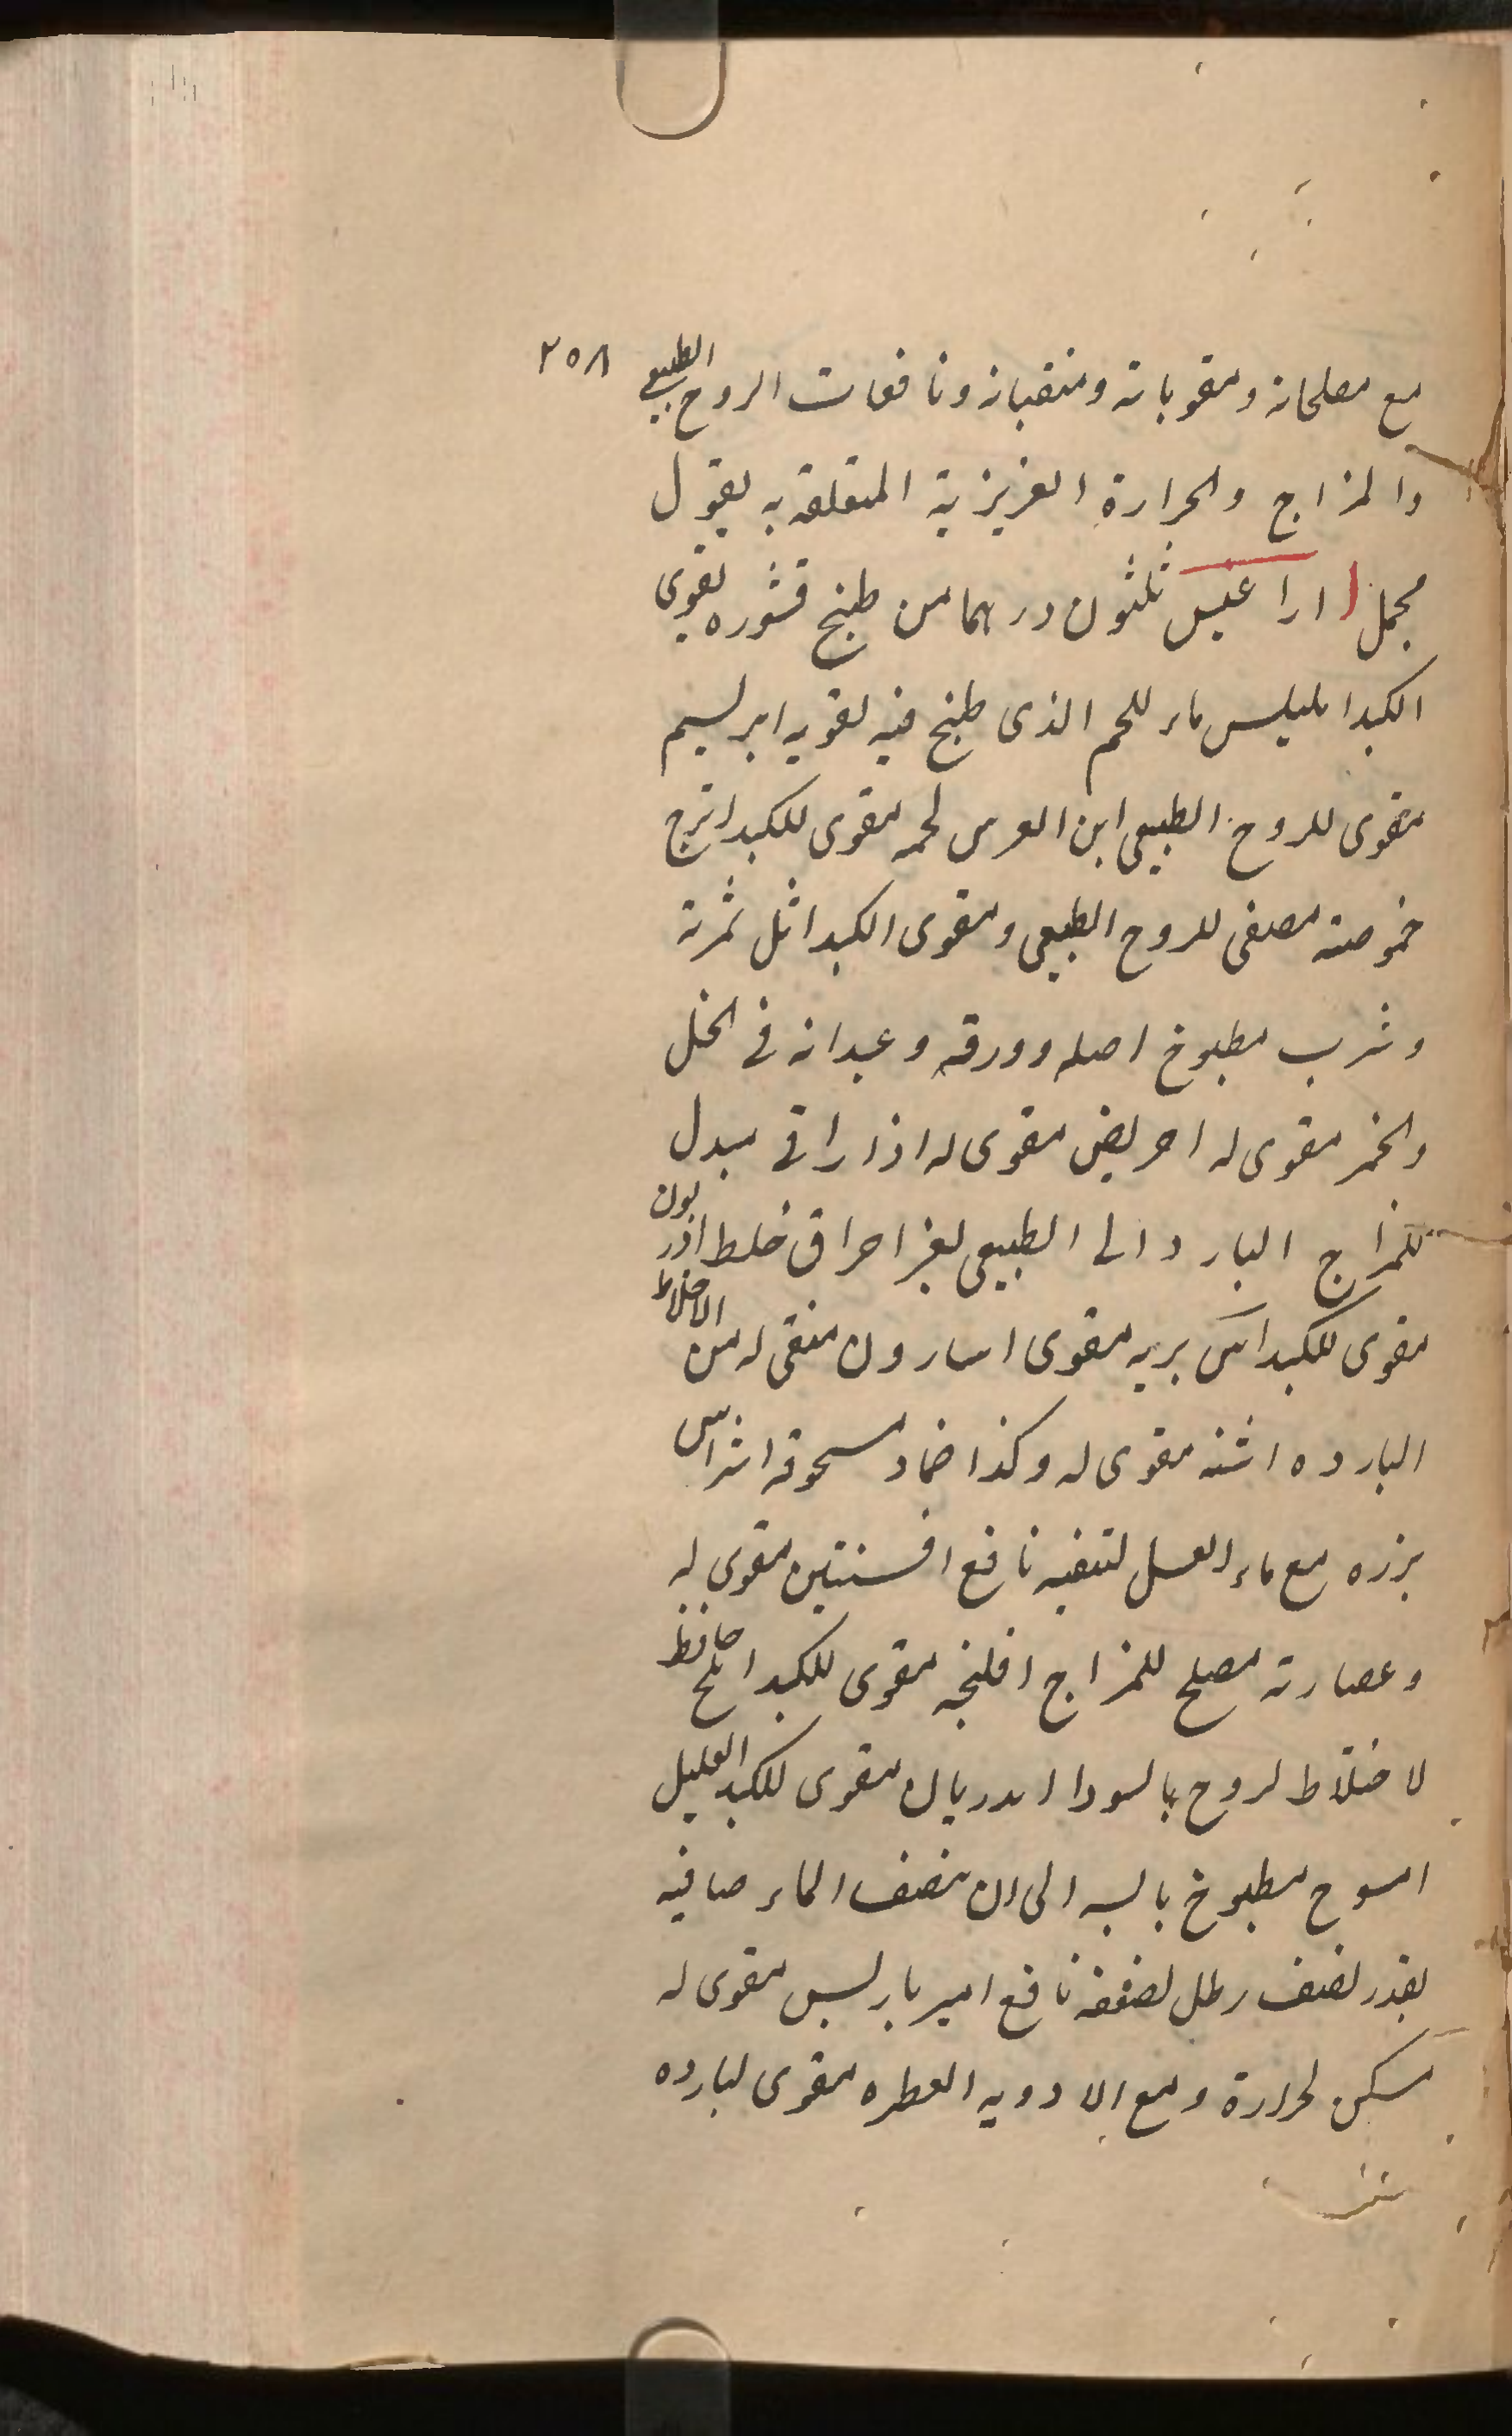 ٢٥٨
مع مصلحاته ومقوياته ومنقيانه ونافعات الروح الطبيعي
والمزاج والحرارة الغريزية المتعلقه به بقول
مجمل اراغيس ثلثون درهما من طبخ قشوره يقوى
الكبد ماء للحم الذى طبخ فيه لقويه ابريسم
مقوى للروح الطبيعى ابن العرس لحمه مقوى للكبد اترج
خموصته مصفى للروح الطبيعى ومقوى الكبد اثل ثمرته
وشرب مطبوخ اصله وورقه وعيدانه فى الخل
والخمر مقوى له احريض مقوى له اذاراقى مبدل
للمزاج البارد الى الطبيعى بغير احراق خلط اذريون
مقوى للكبد اس بريه مقوى اسارون منقى له من الاخلاط
البارده اشنه مقوى له وكذا ضماد مسحوقه اشراس
بزره مع ماء العسل لتنقيه نافع افسنتين مقوى له
وعصارته مصلح للمزاج افلنجه مقوى للكبد املج حافظ
لاختلاط لروح بالسودا مقوى للكبد العليل
امسوح مطبوخ الى ان ينصف الماء صافيه
بقدر نصف رطل لضعفه نافع اميرباريس مقوى له
مسكن لحرارة ومع الادويه العطره مقوى لبارده